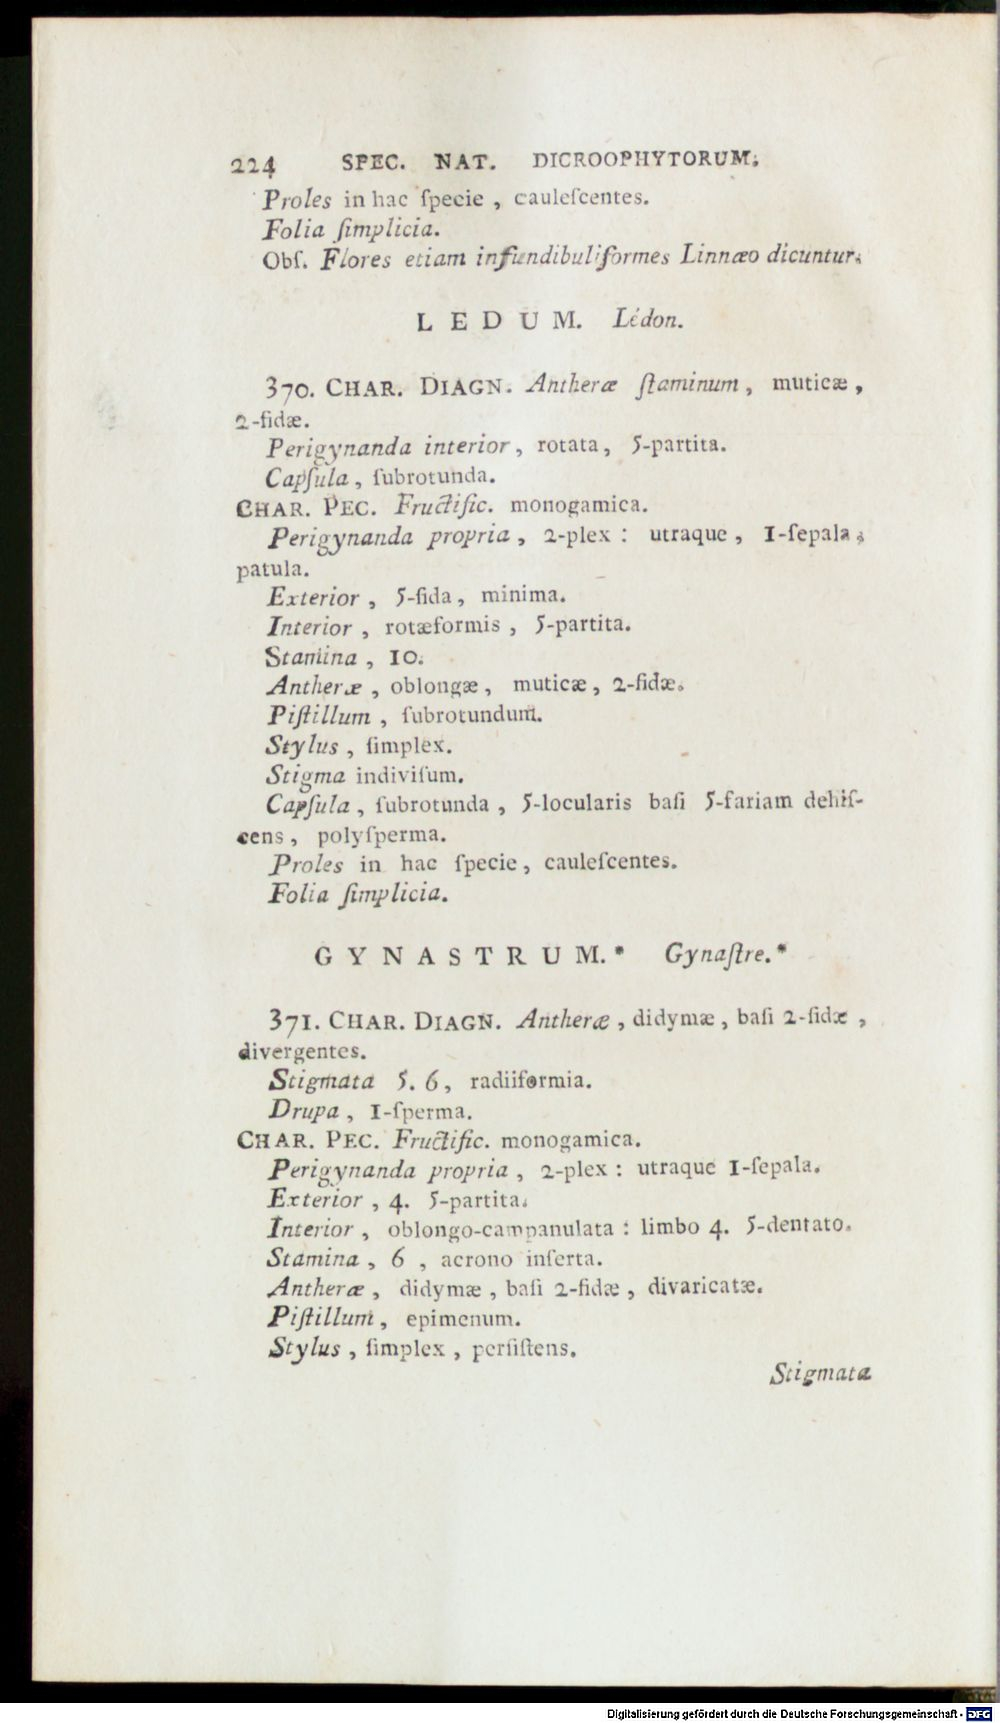 224 SPEC. NAT. DICROOPHYTORUM.
Proles in hac ſpecie , cauleſcentes.
Folia ſimplicia.
Obſ. Flores etiam infundibuliformes Linnæo dicuntur.
LEDUM. Lédon.
370. CHAR. DIAGN. Antheræ ſtaminum , muticæ ,
2-fidæ.
Perigynanda interior , rotata , 5-partita.
Capſula , ſubrotunda.
CHAR. PEC. Fructific. monogamica.
Perigynanda propria , 2-plex : utraque , 1-ſepala ,
patula.
Exterior , 5-fida , minima.
Interior , rotæformis , 5-partita.
Stamina , 10.
Antheræ , oblongæ , muticæ , 2-fidæ.
Piſtillum , ſubrotundum.
Stylus , ſimplex.
Stigma indiviſum.
Capſula , ſubrotunda , 5-locularis baſi 5-fariam dehiſ-
cens , polyſperma.
Proles in hac ſpecie , cauleſcentes.
Folia ſimplicia.
GYNASTRUM.* Gynaſtre.*
371. CHAR. DIAGN. Antheræ , didymæ , baſi 2-fidæ ,
divergentes.
Stigmata 5. 6 , radiiformia.
Drupa , 1-ſperma.
CHAR. PEC. Fructific. monogamica.
Perigynanda propria , 2-plex : utraque 1-ſepala.
Exterior , 4. 5-partita.
Interior , oblongo-campanulata : limbo 4. 5-dentato.
Stamina , 6 , acrono inſerta.
Antheræ , didymæ , baſi 2-fidæ , divaricatæ.
Piſtillum , epimenum.
Stylus , ſimplex , perſiſtens.
Stigmata
Digitalisierung gefördert durch die Deutsche Forschungsgemeinschaft - DFG